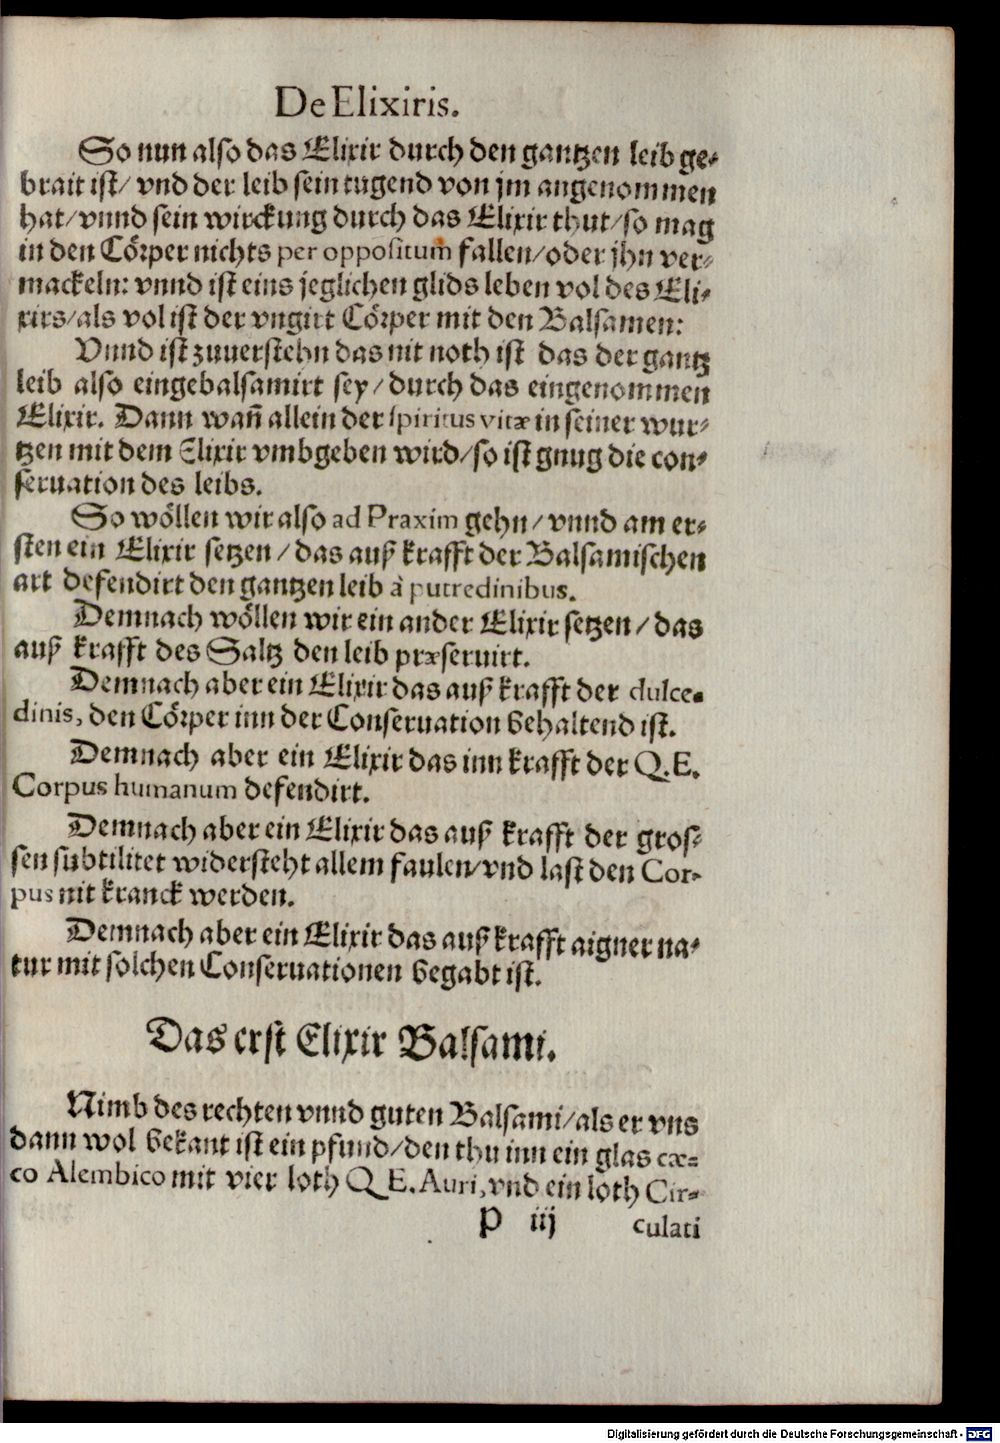 De Elixiris.
So nun also das Elixir durch den gantzen leib ge-
brait ist/ vnd der leib sein tugend von jm angenommen
hat/ vnnd sein wirckung durch das Elixir thut/ so mag
in den Cörper nichts per oppositum fallen/ oder jhn ver-
mackeln: vnnd ist eins jeglichen glids leben vol des Eli-
xirs/ als vol ist der vngirt Cörper mit den Balsamen:
Vnnd ist zuuerstehn das nit noth ist das der gantz
leib also eingebalsamirt sey/ durch das eingenommen
Elixir. Dann wañ allein der spiritus vitæ in seiner wur-
tzen mit dem Elixir vmbgeben wird/ so ist gnug die con-
seruation des leibs.
So wöllen wir also ad Praxim gehn/ vnnd am er-
sten ein Elixir setzen/ das auß krafft der Balsamischen
art defendirt den gantzen leib à putredinibus.
Demnach wöllen wir ein ander Elixir setzen/ das
auß krafft des Saltz den leib præseruirt.
Demnach aber ein Elixir das auß krafft der dulce-
dinis, den Cörper inn der Conseruation behaltend ist.
Demnach aber ein Elixir das inn krafft der Q.E.
Corpus humanum defendirt.
Demnach aber ein Elixir das auß krafft der gros-
sen subtilitet widersteht allem faulen/ vnd last den Cor-
pus nit kranck werden.
Demnach aber ein Elixir das auß krafft aigner na-
tur mit solchen Conseruationen begabt ist.
Das erst Elixir Balsami.
Nimb des rechten vnnd guten Balsami/ als er vns
dann wol bekant ist ein pfund/ den thu inn ein glas cæ-
co Alembico mit vier loth Q E. Auri, vnd ein loth Cir-
P iij culati
Digitalisierung gefördert durch die Deutsche Forschungsgemeinschaft - DFG